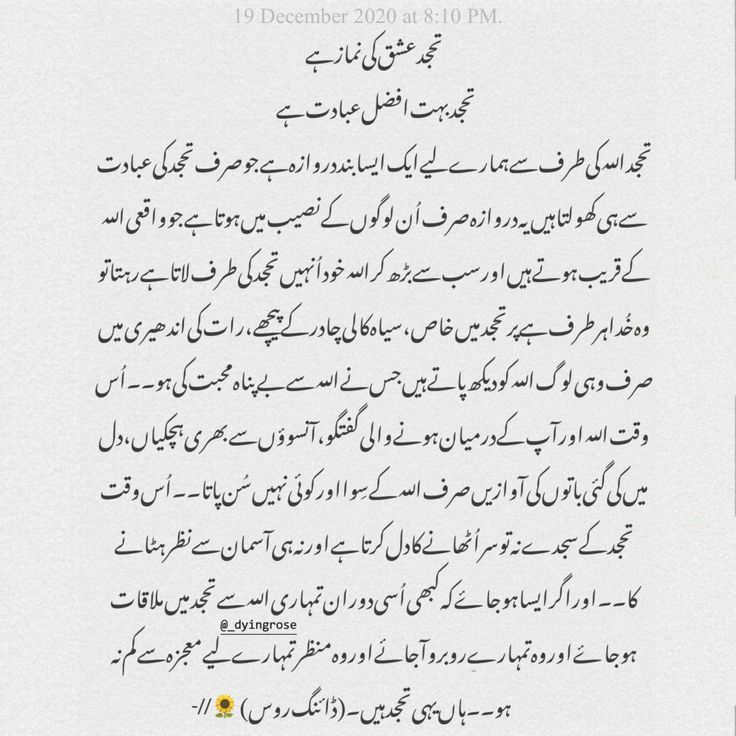 19 December 2020 at 8:10 PM.
تہجد عشق کی نماز ہے
تہجد بہت افضل عبادت ہے
تہجد اللہ کی طرف سے ہمارے لیے ایک ایسا بند دروازہ ہے جو صرف تہجد کی عبادت
سے ہی کھولتا ہیں یہ دروازہ صرف اُن لوگوں کے نصیب میں ہوتا ہے جو واقعی اللہ
کے قریب ہوتے ہیں اور سب سے بڑھ کر اللہ خود اُنہیں تہجد کی طرف لاتا ہے رہتا تو
وہ خُدا ہر طرف ہے پر تہجد میں خاص، سیاہ کالی چادر کے پیچھے، رات کی اندھیری میں
صرف وہی لوگ اللہ کو دیکھ پاتے ہیں جس نے اللہ سے بے پناہ محبت کی ہو۔۔ اُس
وقت اللہ اور آپ کے درمیان ہونے والی گفتگو، آنسوؤں سے بھری ہچکیاں، دل
میں کی گئی باتوں کی آوازیں صرف اللہ کے سِوا اور کوئی نہیں سُن پاتا۔۔ اُس وقت
تہجد کے سجدے نہ تو سر اُٹھانے کا دل کرتا ہے اور نہ ہی آسمان سے نظر ہٹانے
کا۔۔ اور اگر ایسا ہو جائے کہ کبھی اُسی دوران تمہاری اللہ سے تہجد میں ملاقات
@_dyingrose
ہو جائے اور وہ تمہارے روبرو آجائے اور وہ منظر تمہارے لیے معجزہ سے کم نہ
ہو۔۔ ہاں یہی تہجد ہیں۔ (ڈائنگ روس) 🌻//-